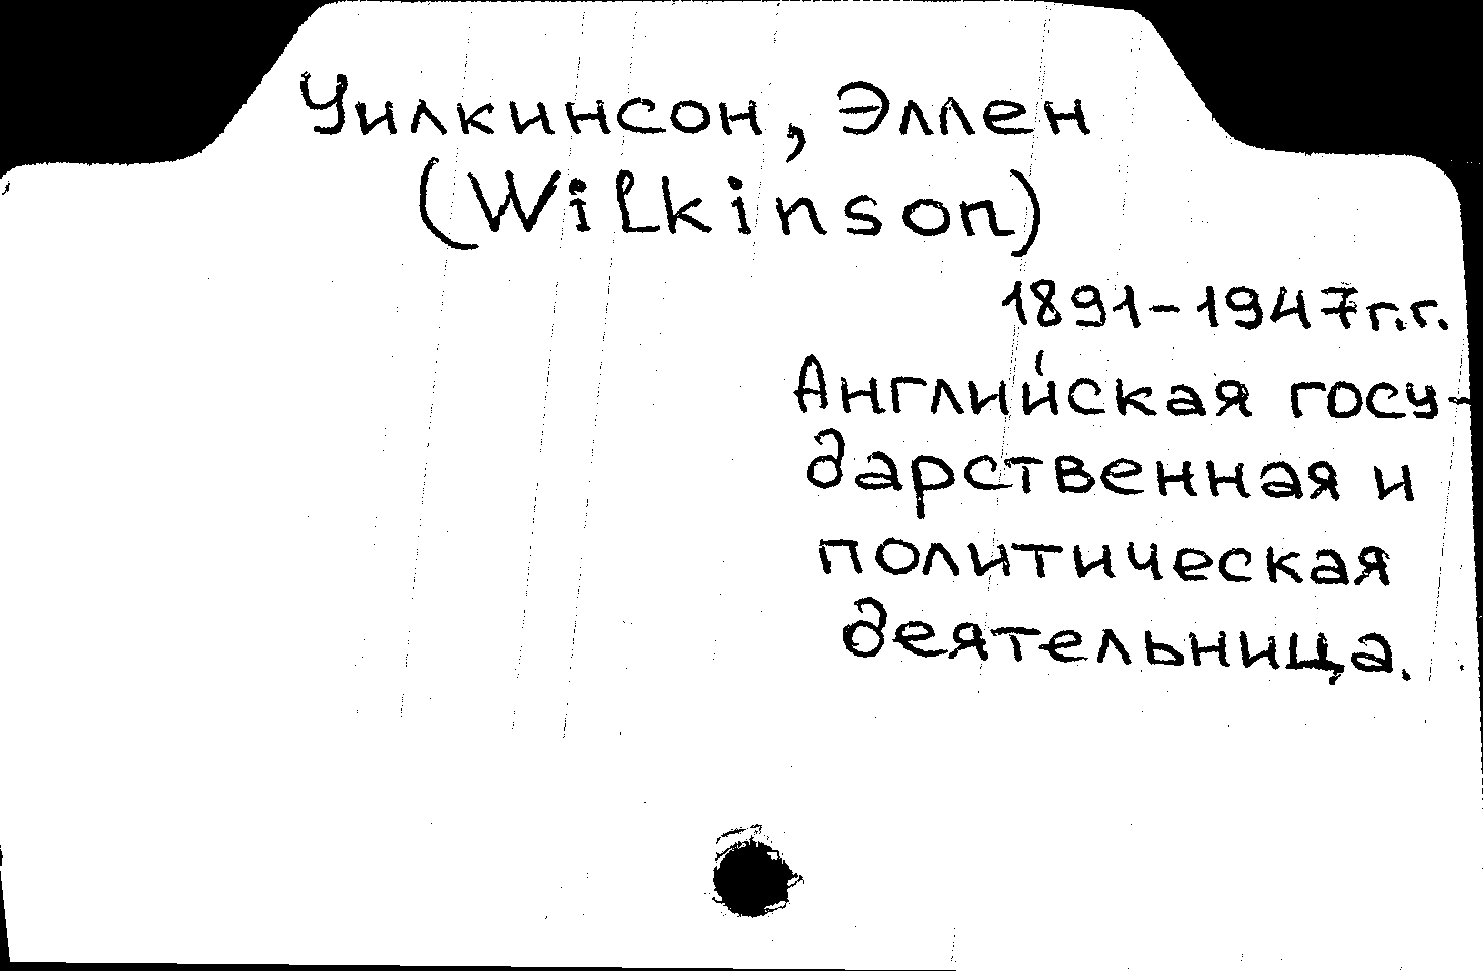 Уилкинсон, Эллен
(Wilkinson)
1891-1947г.г.
Английская госу-
дарственная и
политическая
деятельница.